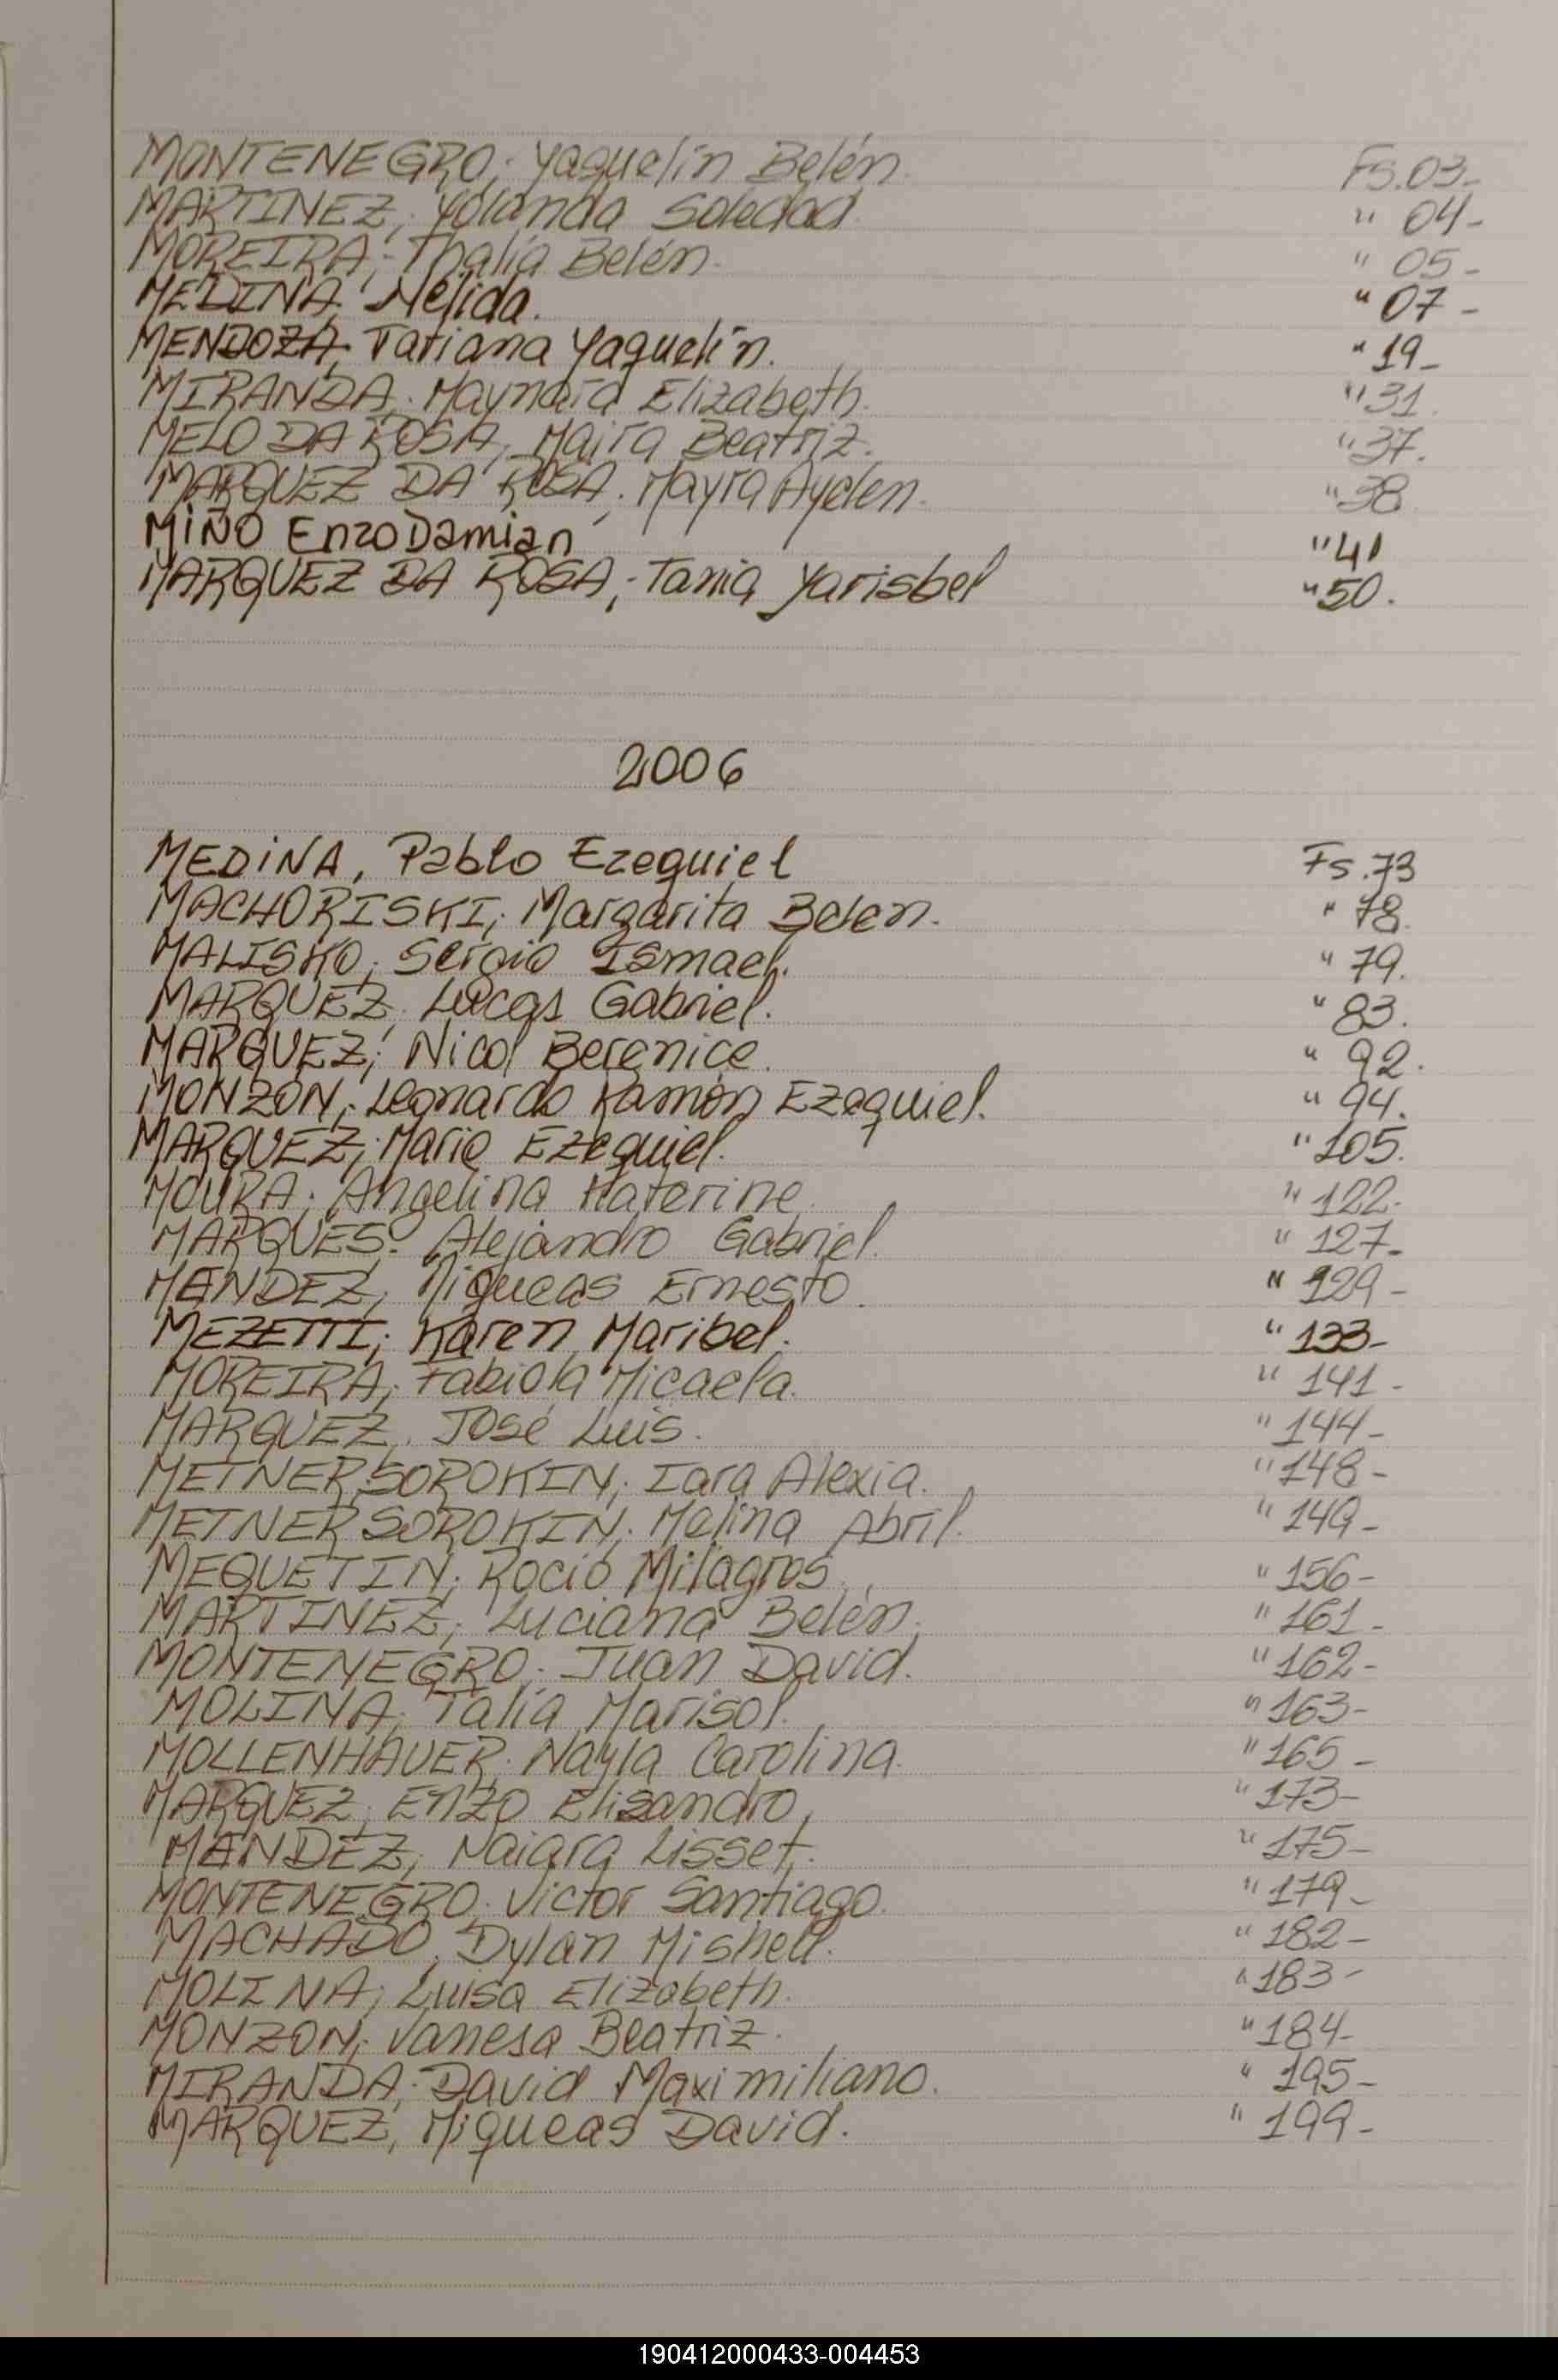 MONTENEGRO; Yaquelín Belén. Fs. 03-
MARTINEZ; Yolanda Soledad. " 04-
MOREIRA; Thalía Belén. " 05-
MEDINA, Nélida. " 07-
MENDOZA, Tatiana Yaquelín. " 19-
MIRANDA; Maynara Elizabeth. " 31.
MELO DA ROSA, Maira Beatriz. " 37.
MARQUEZ DA ROSA; Mayra Ayelen. " 38
MIÑO Enzo Damian " 41
MARQUEZ DA ROSA; Tania Yarisbel " 50.
2006
MEDINA, Pablo Ezequiel Fs. 73
MACHORISKI; Margarita Belen. " 78.
MALISKO; Sergio Ismael. " 79.
MARQUEZ; Lucas Gabriel. " 83.
MARQUEZ; Nicol Berenice. " 92.
MONZON; Leonardo Ramón Ezequiel. " 94.
MARQUEZ; Mario Ezequiel. " 105.
MOURA; Angelina Katerine. " 122-
MARQUES; Alejandro Gabriel. " 127-
MENDEZ; Miqueas Ernesto. " 129-
MEZETTI; Karen Maribel. " 133-
MOREIRA; Fabiola Micaela. " 141-
MARQUEZ, José Luis. " 144-
METNER SOROKIN; Iara Alexia. " 148-
METNER SOROKIN; Melina Abril. " 149-
MEQUETIN; Rocío Milagros. " 156-
MARTINEZ; Luciana Belén. " 161-
MONTENEGRO; Juan David. " 162-
MOLINA; Talía Marisol. " 163-
MOLLENHAUER; Nayla Carolina. " 165-
MARQUEZ; Enzo Elisandro, " 173-
MENDEZ; Naiara Lisset. " 175-
MONTENEGRO; Victor Santiago. " 179-
MACHADO, Dylan Mishell. " 182-
MOLINA; Luisa Elizabeth. " 183-
MONZON; Vanesa Beatriz. " 184-
MIRANDA; David Maximiliano. " 195-
MARQUEZ; Miqueas David. " 199-
190412000433-004453